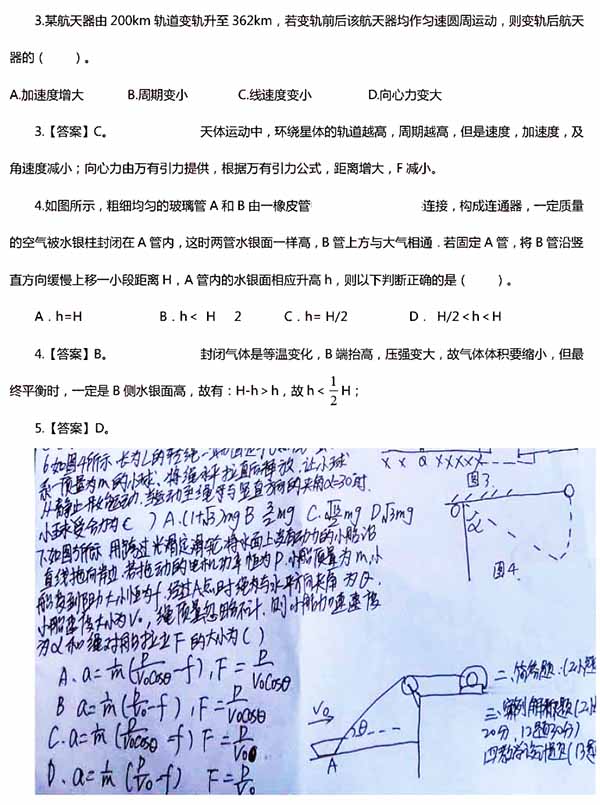 3.某航天器由 200km 轨道变轨升至 362km，若变轨前后该航天器均作匀速圆周运动，则变轨后航天
器的（ ）。
A.加速度增大 B.周期变小 C.线速度变小 D.向心力变大
3.【答案】C。 天体运动中，环绕星体的轨道越高，周期越高，但是速度，加速度，及
角速度减小；向心力由万有引力提供，根据万有引力公式，距离增大，F 减小。
4.如图所示，粗细均匀的玻璃管 A 和 B 由一橡皮管 连接，构成连通器，一定质量
的空气被水银柱封闭在 A 管内，这时两管水银面一样高，B 管上方与大气相通．若固定 A 管，将 B 管沿竖
直方向缓慢上移一小段距离 H，A 管内的水银面相应升高 h，则以下判断正确的是（ ）。
A．h=H B．h＜ H 2 C．h= H/2 D． H/2＜h＜H
4.【答案】B。 封闭气体是等温变化，B 端抬高，压强变大，故气体体积要缩小，但最
终平衡时，一定是 B 侧水银面高，故有：H-h＞h，故 h＜1/2 H；
5.【答案】D。
6.如图4所示 长为L的轻绳一
系一质量为m的小球 将绳水平拉直后释放 让小球
从静止开始运动 当运动至绳子与竖直方向的夹角α=30°时
小球受合力为（ ）A.(1+√3)mg B 3/2 mg C. mg D √3mg
X X Q XXXXX
图3.
O
α
图4
7.如图5所示 用跨过光滑定滑轮将水面上失去动力的小船沿
直线拖向岸边 若拖动的电机功率恒为P 小船质量为m,小
船受到阻力大小恒为f 经过A点时绳与水平方向夹角为θ,
小船速度大小为V₀, 绳质量忽略不计 则小船加速度
为α和绳对船的拉力F的大小为（ ）
A. a=1/m (P/V₀cosθ -f), F=P/V₀cosθ
B a=1/m (P/V₀ -f), F=P/V₀cosθ
C. a=1/m (P/V₀cosθ -f) F=P/V₀
D. a=1/m (P/V₀ -f) F=P/V₀
V₀
θ
A
二、简答题.(2小题
三.案例解释题(2小
20分, 12题30分)
四教学设计题(13题